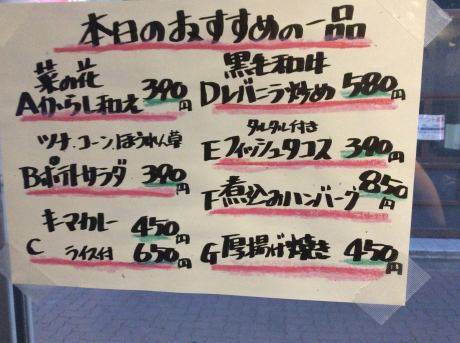 本日のおすすめの一品
菜の花
Aからし和え 390円
ツナ、コーン、ほうれん草
Bポテトサラダ 390円
キマカレー 450円
C ライス付 650円
黒毛和牛
Dレバニラ炒め 580円
タルタル付き
Eフィッシュタコス 390円
F煮込みハンバーグ 850円
G厚揚げ焼き 450円